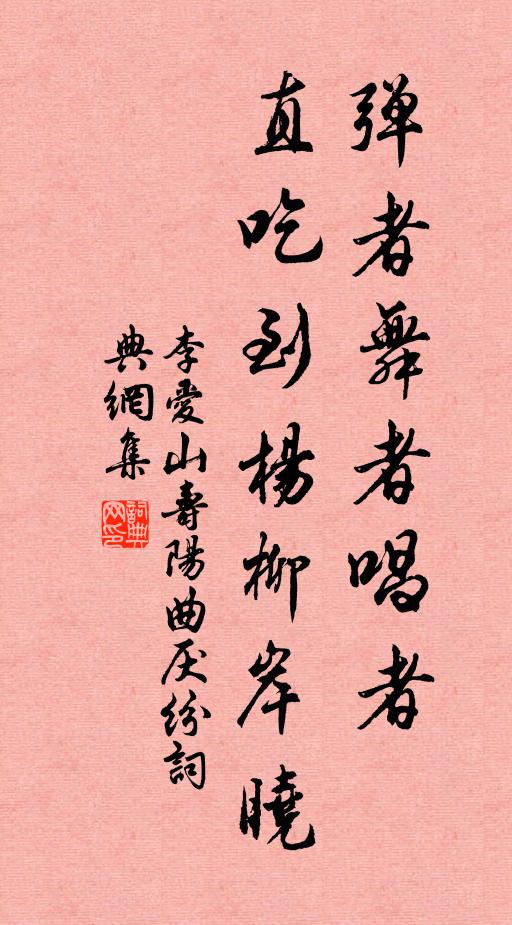 弹者舞者唱者
直吃到杨柳岸晓
李愛山壽陽曲厌纷詞
典網集
詞典
网印